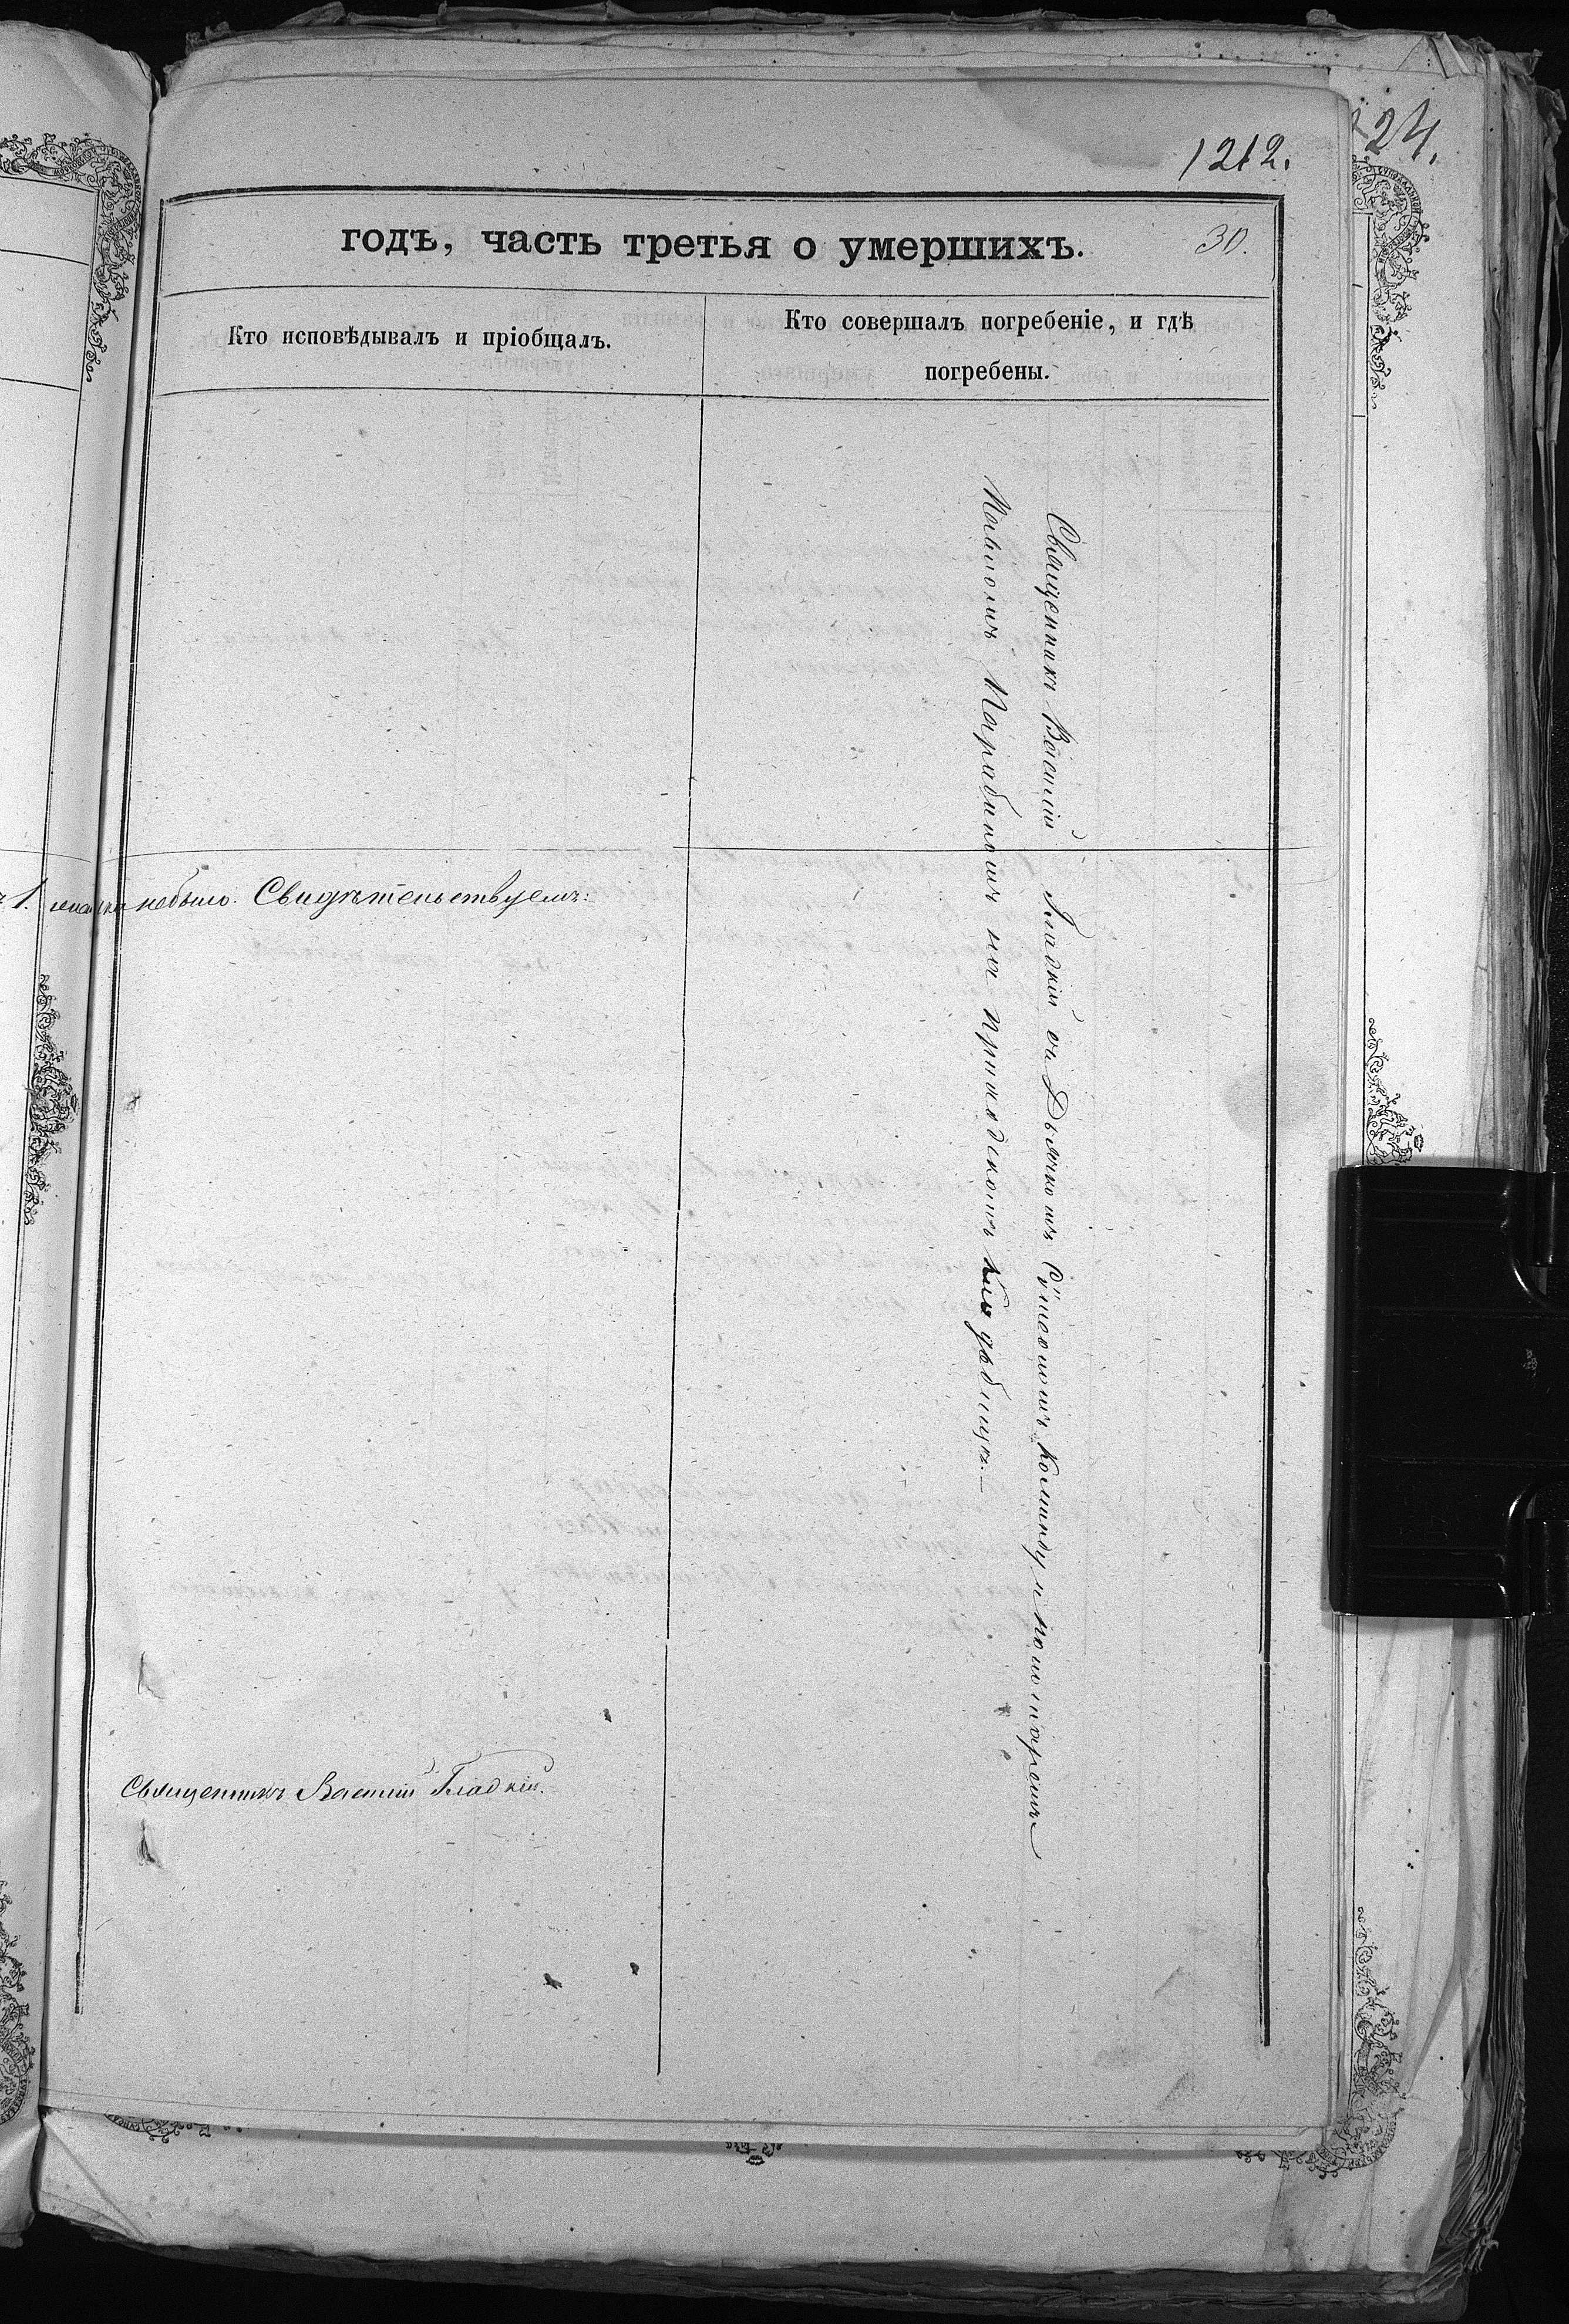 1212.
124.
годъ, часть третья о умершихъ.
30.
Кто исповѣдывалъ и пріобщалъ.
Кто совершалъ погребеніе, и гдѣ
погребены.
Священникъ Василій Гладкій съ Дьячкомъ Сѵмеономъ и пономаремъ
Павломъ на приходскомъ кладбищѣ.
1.
небыло. Свидѣтельствуемъ:
Священникъ Василій Гладкій.